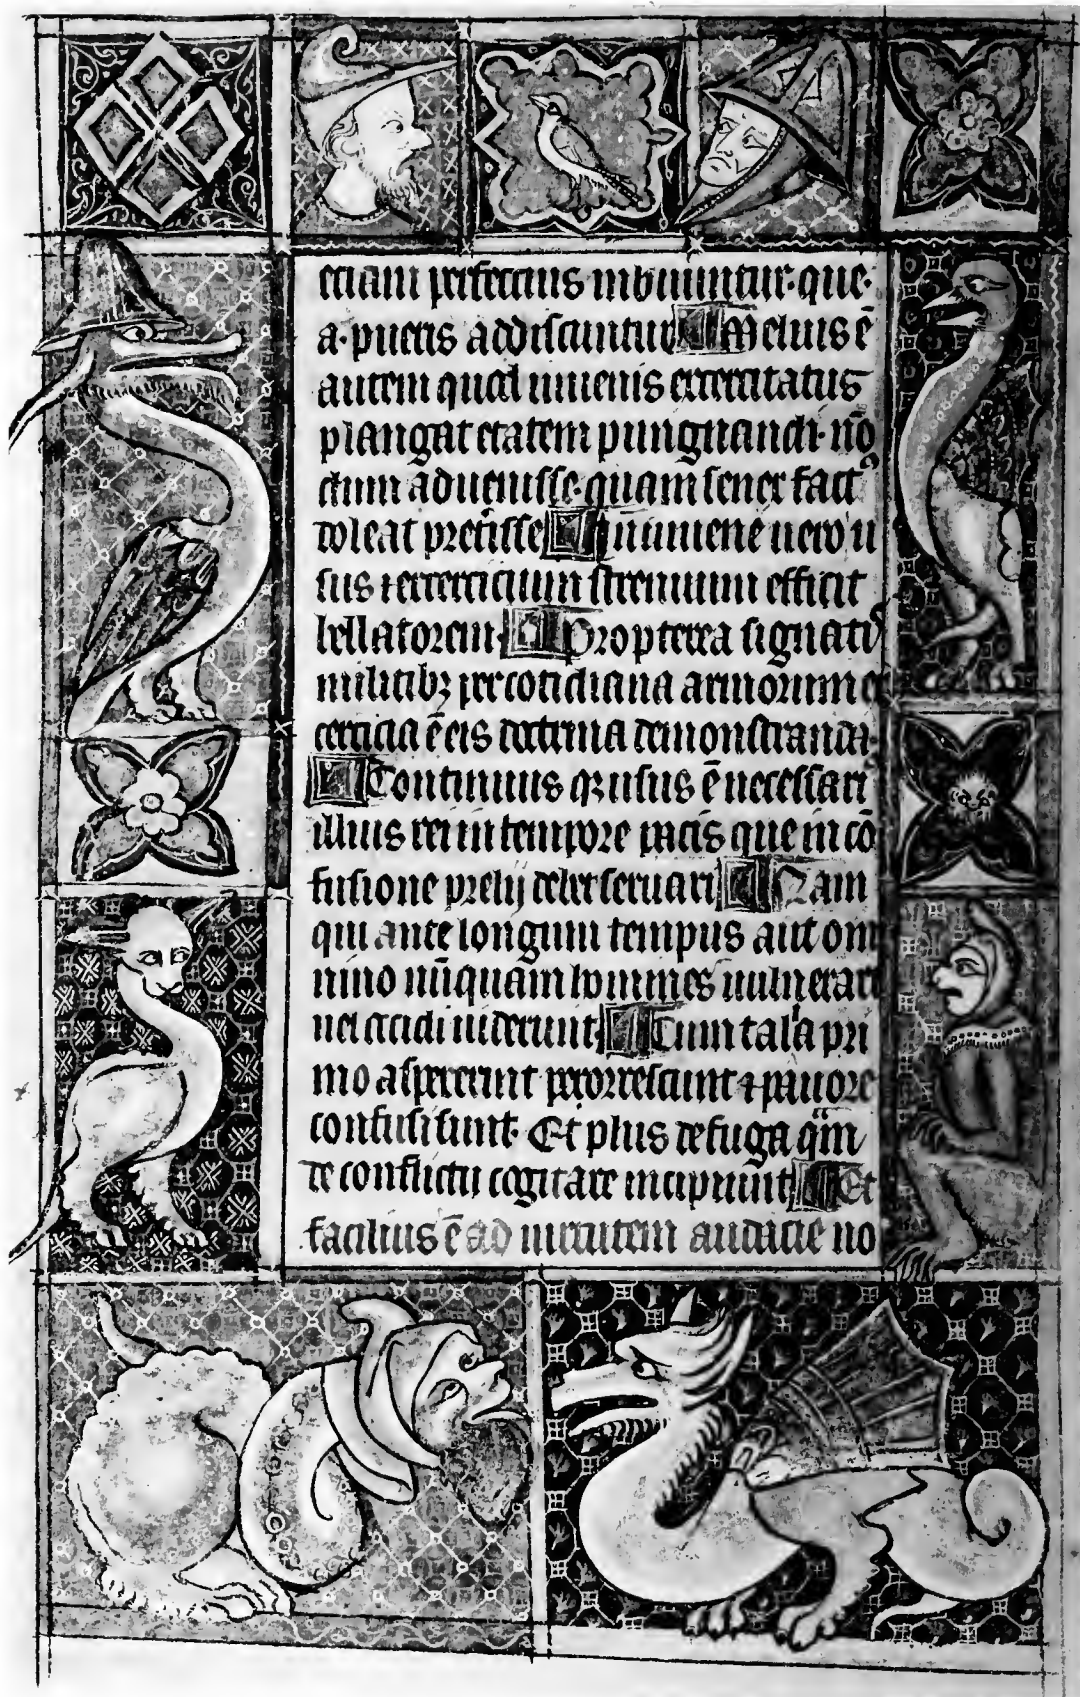 etiam perfectius inbuuntur· que·
a· pueris addiscuntur Melius ē
autem quod iuuenis exercitatus
plangat etatem pungnandi· nō
dum aduenisse· quam senex fact⁹
doleat preterisse In iuuene uero u
sus ⁊ exercicium strenuum efficit
bellatorem· Propterea signati
militibꝫ per cotidiana armorum ex
cercicia ē eis doctrina demonstranda·
Continuus qꝫ usus ē necessari⁹
illius rei in tempore pacis que in cō
fusione prelij debet seruari Nam
qui ante longum tempus aut om
nino nūquam homines uulnerari
uel occidi uiderunt Cum talia pri
mo aspexerint perorrescunt ⁊ pauore
confusi sunt· Et plus de fuga qm̄
de conflictu cogitare incipiunt Et
facilius ē ad uirtutem audacie no